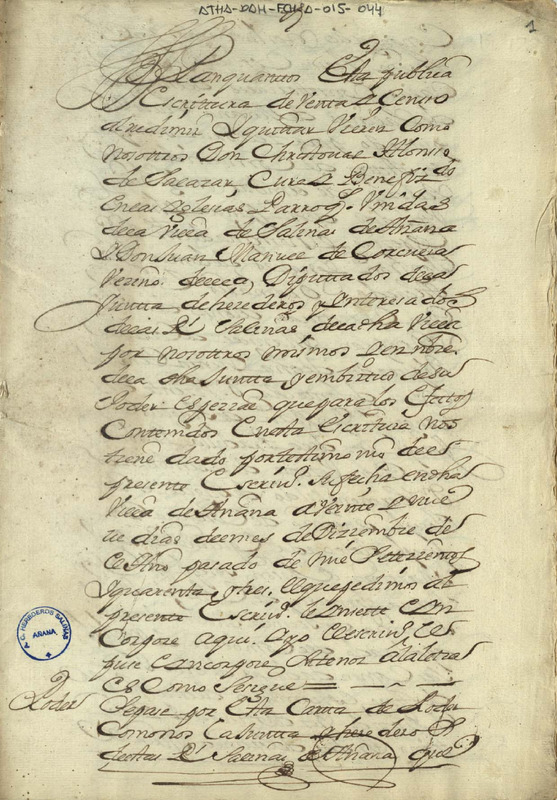 ATHA-DAH-FCHSA-015-044
1
Sepan quantos Esta publica
Escrittura de Venta de Censo
al redimir y quittar Vieren Como
nosottros Don Christoual Alonso
de Salazar, Cura y Benefiz.do
en las Iglesias Parroq.s Vnidas
de la Villa de Salinas de Añana
y Don Juan Manuel de Corcuera
Vezino de ella, Diputtados de las
Juntta de herederos y Ynteresados
de las R.s Salinas de la dha Villa
por nosottros mismos y en nombre
de la dha Juntta y en birttud de su
Poder Espezial que para los Efettos
Contenidos En esta Escritura nos
tiene dado por testimonio de el
presente Escriu.o su fecha en dha
Villa de Añana a Veinte y nueve
dias del mes de Diziembre de
el Año pasado de mil Settezientos
y quarenta y tres, el que pedimos al
presente Escriu.o le Ynserte e Yn
Corpore aqui, e yo el escriu.o le
puse e Yncorpore, Atenor a la letra
es Como Sesigue
Poder
Sepase por Esta Carta de Poder
Como nos la Juntta y herederos
destas R.s Salinas de Añana que
A. C. HEREDEROS SALINAS
AÑANA